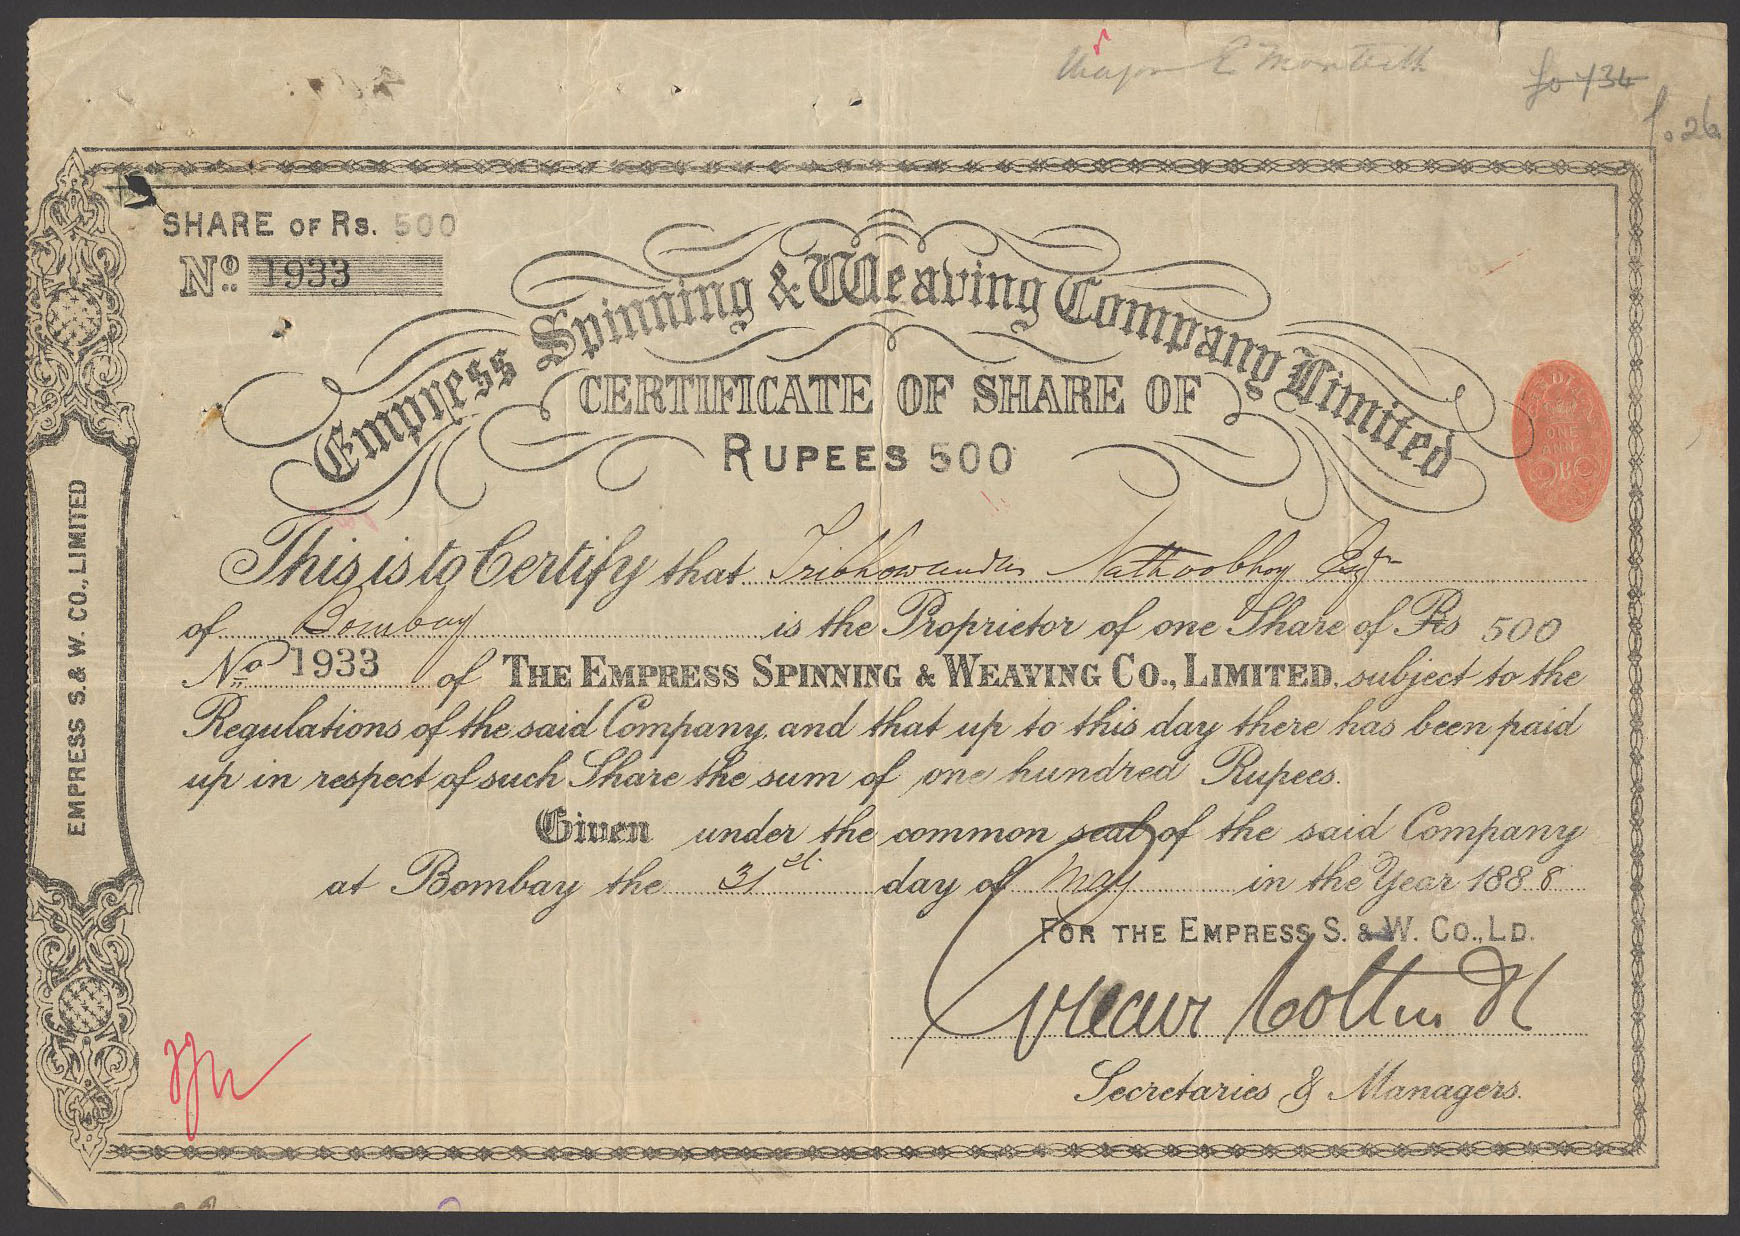 Major E Monteith
fo 134
f. 26
SHARE OF RS. 500
No. 1933
Empress Spinning & Weaving Company Limited
CERTIFICATE OF SHARE OF
RUPEES 500
ONE
EMPRESS S. & W. CO., LIMITED
This is to Certify that Tribhowandas Nathoobhoy Esqr
of Bombay is the Proprietor of one Share of Rs 500
No 1933 of THE EMPRESS SPINNING & WEAVING CO., LIMITED. subject to the
Regulations of the said Company, and that up to this day there has been paid
up in respect of such Share the sum of one hundred Rupees.
Given under the common seal of the said Company
at Bombay the 31st day of May in the Year 1888
FOR THE EMPRESS S. & W. CO., LD.
Secretaries & Managers.